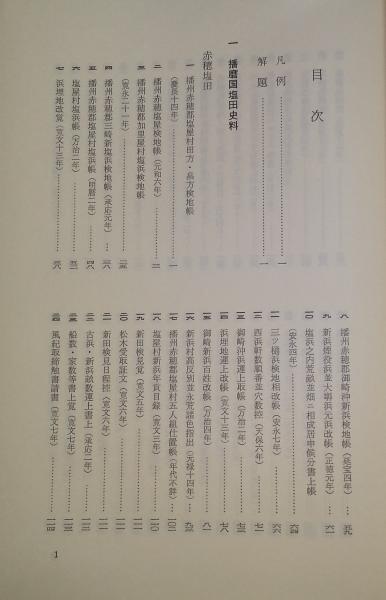 目次
凡例……一
解題……一
一 播磨国塩田史料
赤穂塩田
一 播州赤穂郡塩屋村田方・畠方検地帳
(慶長十四年)……一
二 播州赤穂郡塩屋検地帳(元和六年)……
三 播州赤穂郡加里屋村塩浜検地帳
(寛永二十一年)……
四 播州赤穂郡三崎新塩浜検地帳(承応元年)……
五 播州赤穂郡塩屋村塩浜検地帳(明暦二年)……四八
六 塩屋村塩浜帳(万治二年)……
七 浜埋地改覚(寛文十三年)……
八 播州赤穂郡御崎沖新浜検地帳(延宝四年)……
九 新浜煙役浜並大塀浜元浜改帳(正徳元年)……六一
一〇 塩浜之内荒畝並畑ニ相成居申候分書上帳
(安永四年)……六四
一一 三ツ樋浜検地相改帳(安永七年)……六六
一二 西浜軒数順番並穴数控(天保六年)……七一
一三 御崎沖浜運上取帳(万治二年)……七三
一四 浜埋地運上改帳(寛文十三年)……七六
一五 御崎新浜百姓改帳(万治四年)……八一
一六 新浜村高反別並永荒諸色指出(元禄十四年)……九三
一七 播州赤穂郡塩屋村五人組仕置帳(年代不詳)……一〇二
一八 塩屋村新浜年貢目録(寛文三年)……一一〇
一九 新田検見覚(寛文五年)……一一一
二〇 松木受取証文(寛文六年)……一一一
二一 新田検見日程控(寛文六年)……
二二 古浜・新浜畝数運上書上(承応二年)……
二三 船数・家数等書上覚(寛文七年)……
二四 風紀取締触書請書(寛文七年)……一一四
1